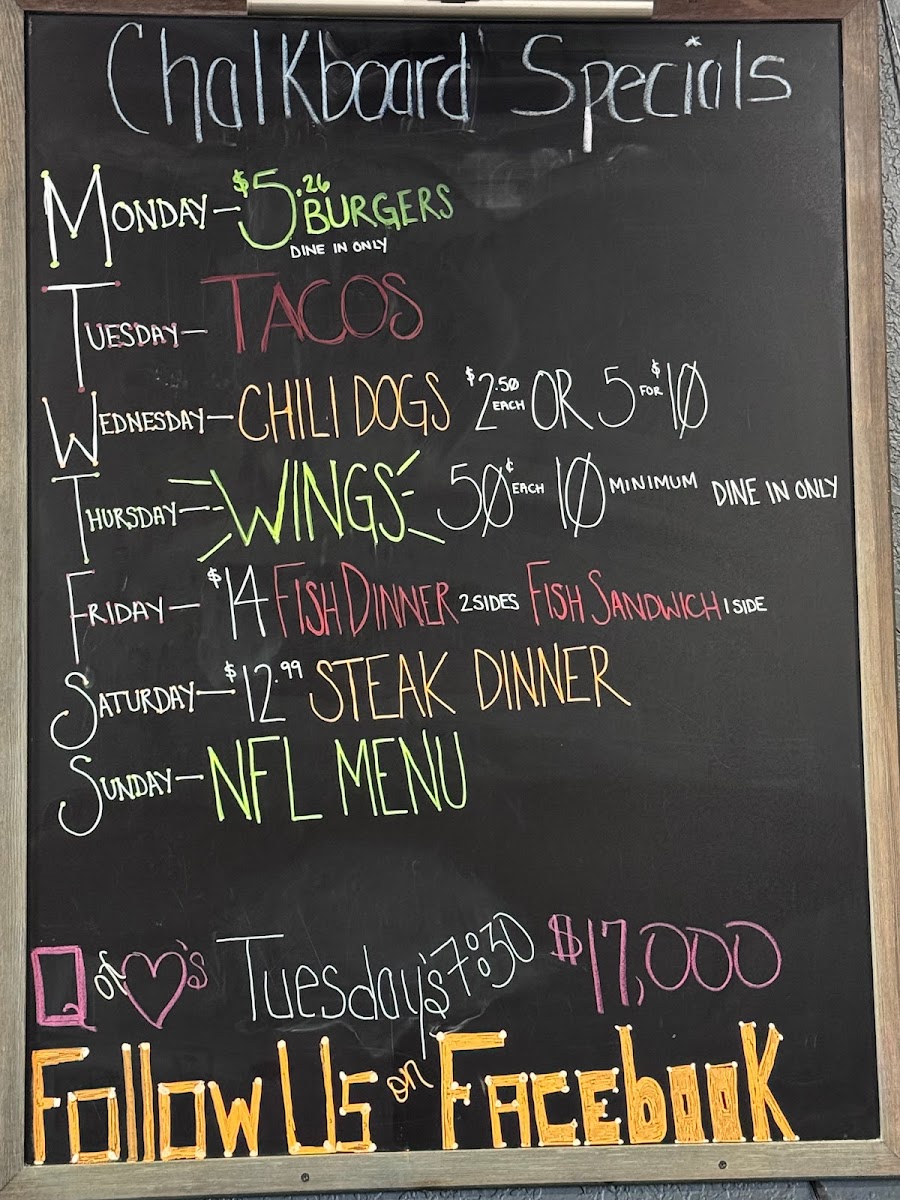 Chalkboard Specials
MONDAY - $5.26 BURGERS
DINE IN ONLY
TUESDAY - TACOS
WEDNESDAY - CHILI DOGS $2.50 EACH OR 5 FOR $10
THURSDAY - WINGS 50¢ EACH 10 MINIMUM DINE IN ONLY
FRIDAY - $14 FISH DINNER 2 SIDES FISH SANDWICH 1 SIDE
SATURDAY - $12.99 STEAK DINNER
SUNDAY - NFL MENU
Q of ♡'s Tuesday's 7:30 $17,000
Follow Us on Facebook